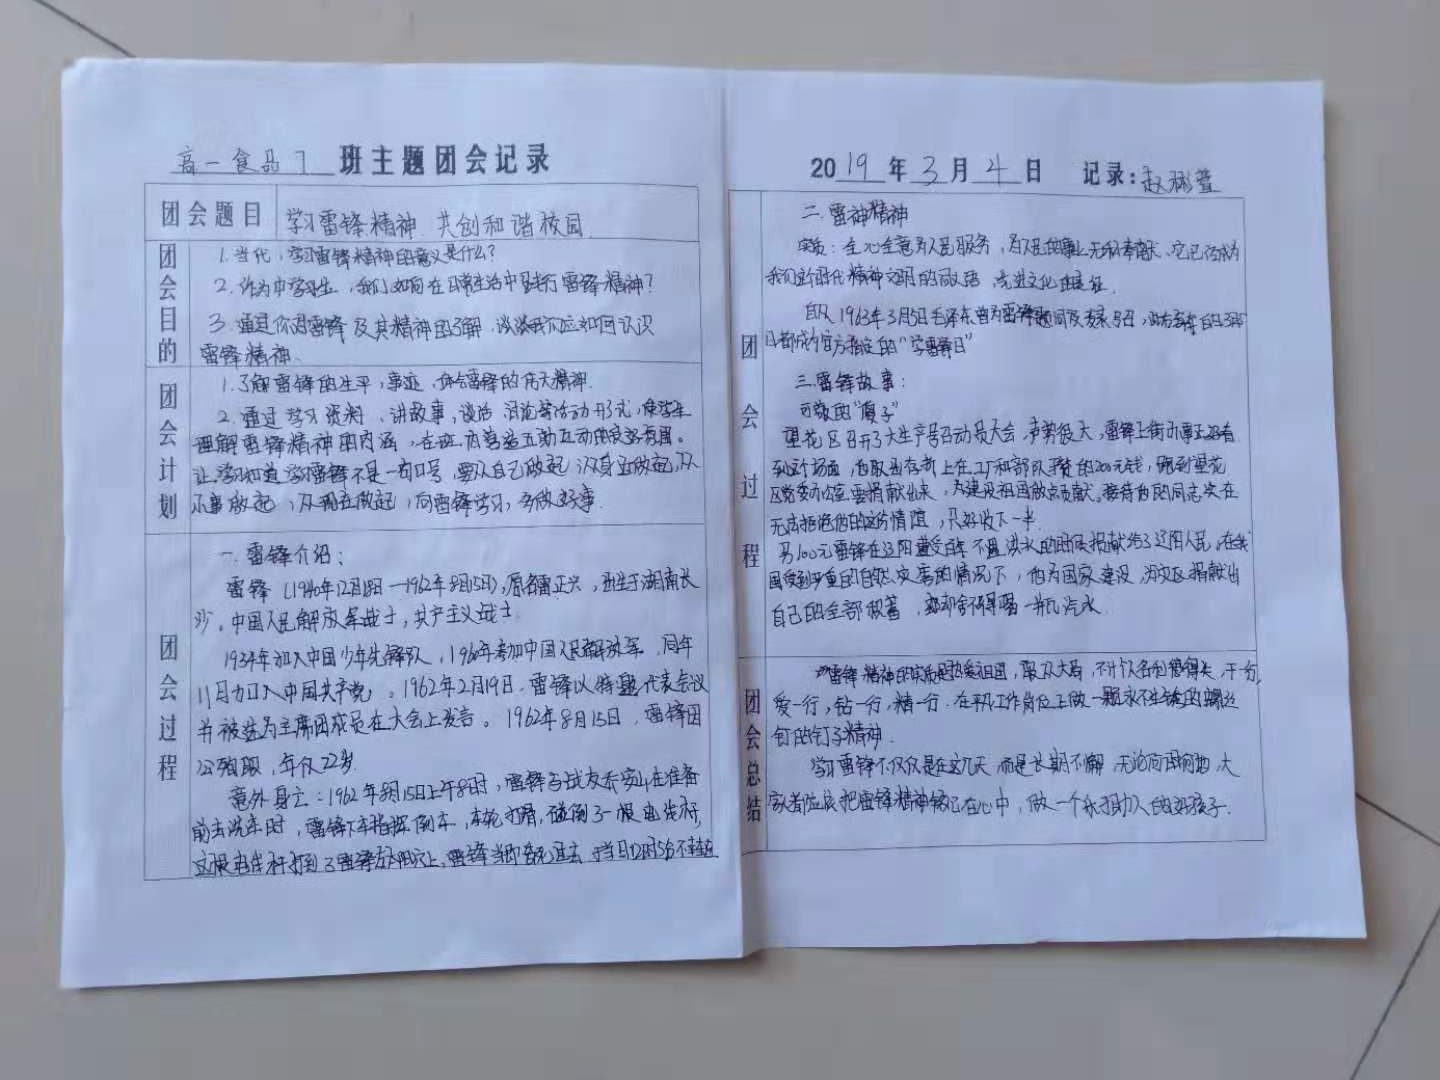 高一食品7班主题团会记录
团会题目
学习雷锋精神 共创和谐校园
团会目的
1.当代，学习雷锋精神的意义是什么?
2.作为中学生，我们如何在日常生活中践行雷锋精神?
3.通过你对雷锋及其精神的了解，谈谈我们应如何认识
雷锋精神、
团会计划
1.了解雷锋的生平，事迹，体会雷锋的伟大精神.
2.通过学习资料、讲故事，谈话 讨论等活动形式，使学生
理解雷锋精神的内涵，在班内营造互助互动的良好氛围。
让学习知道学习雷锋不是一句口号，要从自己做起 从身边做起，从
小事做起，从现在做起，向雷锋学习，多做好事.
团会过程
一.雷锋介绍：
雷锋（1940年12月18日—1962年8月15日），原名雷正兴，出生于湖南长
沙。中国人民解放军战士，共产主义战士.
1954年加入中国少年先锋队，1960年参加中国人民解放军 同年
11月加入中国共产党。1962年2月19日.雷锋以特邀代表会议
并被选为主席团成员在大会上发言。1962年8月15日.雷锋因
公殉职，年仅22岁.
意外身亡：1962年8月15日上午8时，雷锋与战友乔安山在准备
前去洗车时，雷锋下车指挥倒车，车轮打滑，碰倒了一根电线杆，
这根电线杆打到了雷锋 上，雷锋当即昏死过去
2019年3月4日 记录：赵
团会过程
二.雷神精神
实质：全心全意为人民服务，为人民的事业无私奉献、它已经成为
我们这个时代精神文明的同义语，先进文化的表征.
自从1963年3月5日毛泽东曾为雷锋题词发表号召，此后每年的3月5
日都成为官方指定的“学雷锋日”
三.雷锋故事：
可敬的“傻子”
望花区召开了大生产号召动员大会，声势很大，雷锋上街办事正好看
到这个场面，他取出存折上在工厂和部队攒的200元钱，跑到望花
区党委办公室要捐献出来，为建设祖国做点贡献。接待他的同志实在
无法拒绝他的这份情谊，只好收下一半.
另100元雷锋在辽阳遭受百年不遇洪水的时候捐献给了辽阳人民，在我
国受到严重的自然灾害的情况下，他为国家建设，为灾区捐献出
自己的全部积蓄，却舍不得喝一瓶汽水.
团会总结
雷锋精神的实质是热爱祖国，顾及大局，不计个人名利和得失，干一行
爱一行，钻一行，精一行.在平凡工作岗位上做一颗永不生锈的螺丝
钉的钉子精神.
学习雷锋不仅仅是在这几天 而是长期不懈 无论何时何地，大
家都应该把雷锋精神铭记在心中，做一个乐于助人的好孩子.